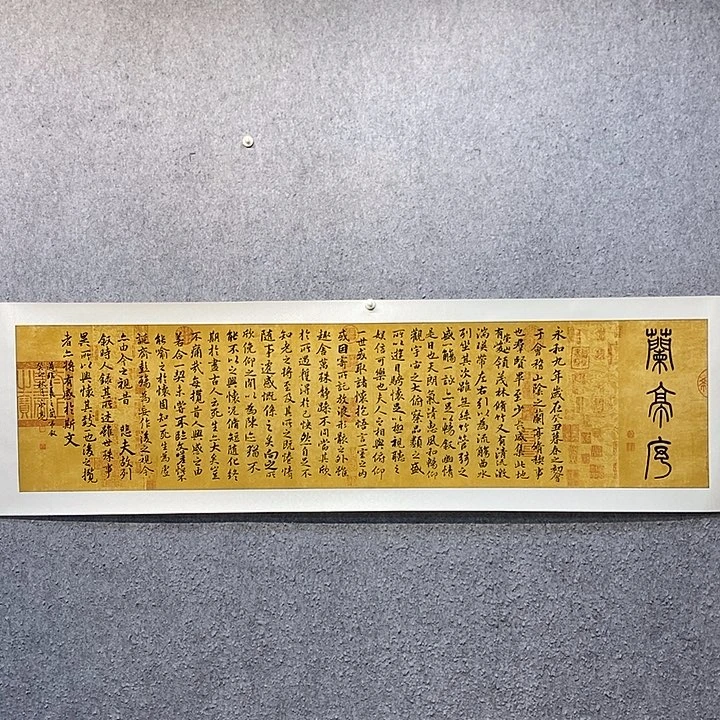 蘭亭序
永和九年歲在癸丑暮春之初會
于會稽山陰之蘭亭脩稧事
也群賢畢至少長咸集此地
有崇山峻領茂林脩竹又有清流激
湍暎帶左右引以為流觴曲水
列坐其次雖無絲竹管弦之
盛一觴一詠亦足以暢敘幽情
是日也天朗氣清惠風和暢仰
觀宇宙之大俯察品類之盛
所以遊目騁懷足以極視聽之
娛信可樂也夫人之相與俯仰
一世或取諸懷抱悟言一室之內
或因寄所託放浪形骸之外雖
趣舍萬殊靜躁不同當其欣
於所遇暫得於己快然自足不
知老之將至及其所之既惓情
隨事遷感慨係之矣向之所
欣俛仰之閒以為陳迹猶不
能不以之興懷況脩短隨化終
期於盡古人云死生亦大矣豈
不痛哉每攬昔人興感之由
若合一契未嘗不臨文嗟悼不
能喻之於懷固知一死生為虛
誕齊彭殤為妄作後之視今
亦由今之視昔 悲夫故列
敘時人錄其所述雖世殊事
異所以興懷其致一也後之攬
者亦將有感於斯文